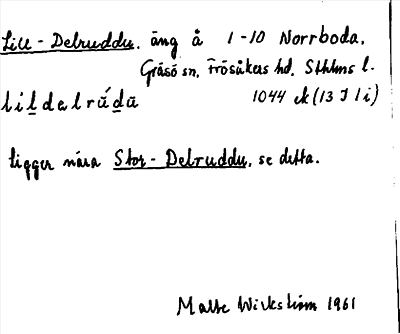 Lill-Delruddu, äng å 1-10 Norrboda,
Gräsö sn, Frösåkers hd, Sthlms l.
lil̲delrúd̲ū 1044 ek (13 J 1 i)
ligger nära Stor-Delruddu, se detta.
Malte Wickström 1961